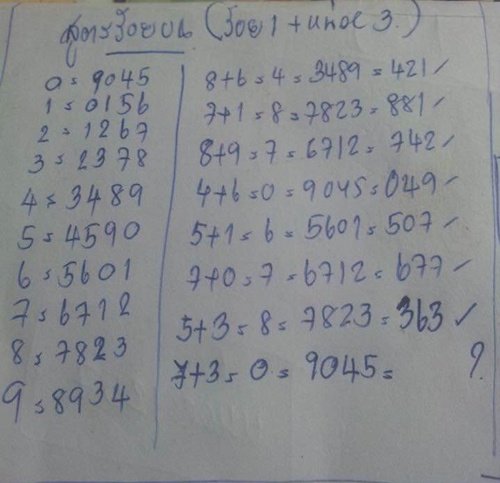 สูตรร้อยบน (ร้อย 1 + หน่วย 3)
0 = 9045
1 = 0156
2 = 1267
3 = 2378
4 = 3489
5 = 4590
6 = 5601
7 = 6712
8 = 7823
9 = 8934
8+6 = 4 = 3489 = 421 ✓
7+1 = 8 = 7823 = 881 ✓
8+9 = 7 = 6712 = 742 ✓
4+6 = 0 = 9045 = 049 ✓
5+1 = 6 = 5601 = 507 ✓
7+0 = 7 = 6712 = 677 ✓
5+3 = 8 = 7823 = 363 ✓
7+3 = 0 = 9045 = ?